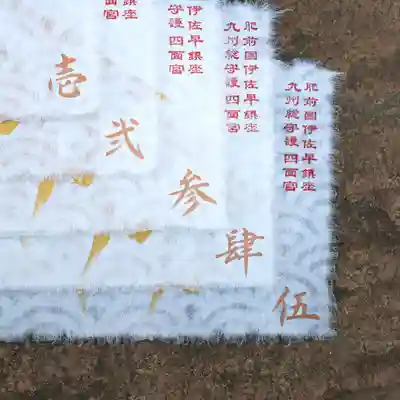 鎮座
四面宮
伊佐早鎮座
守護四面宮
肥前国伊佐早鎮座
九州総守護四面宮
肥前国伊佐早鎮座
九州総守護四面宮
壱
弐
参
肆
伍